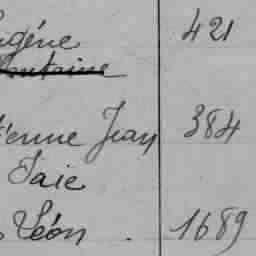 ugéne 421
Fontaine
ienne Jean 384
Jaie
Léon . 1689